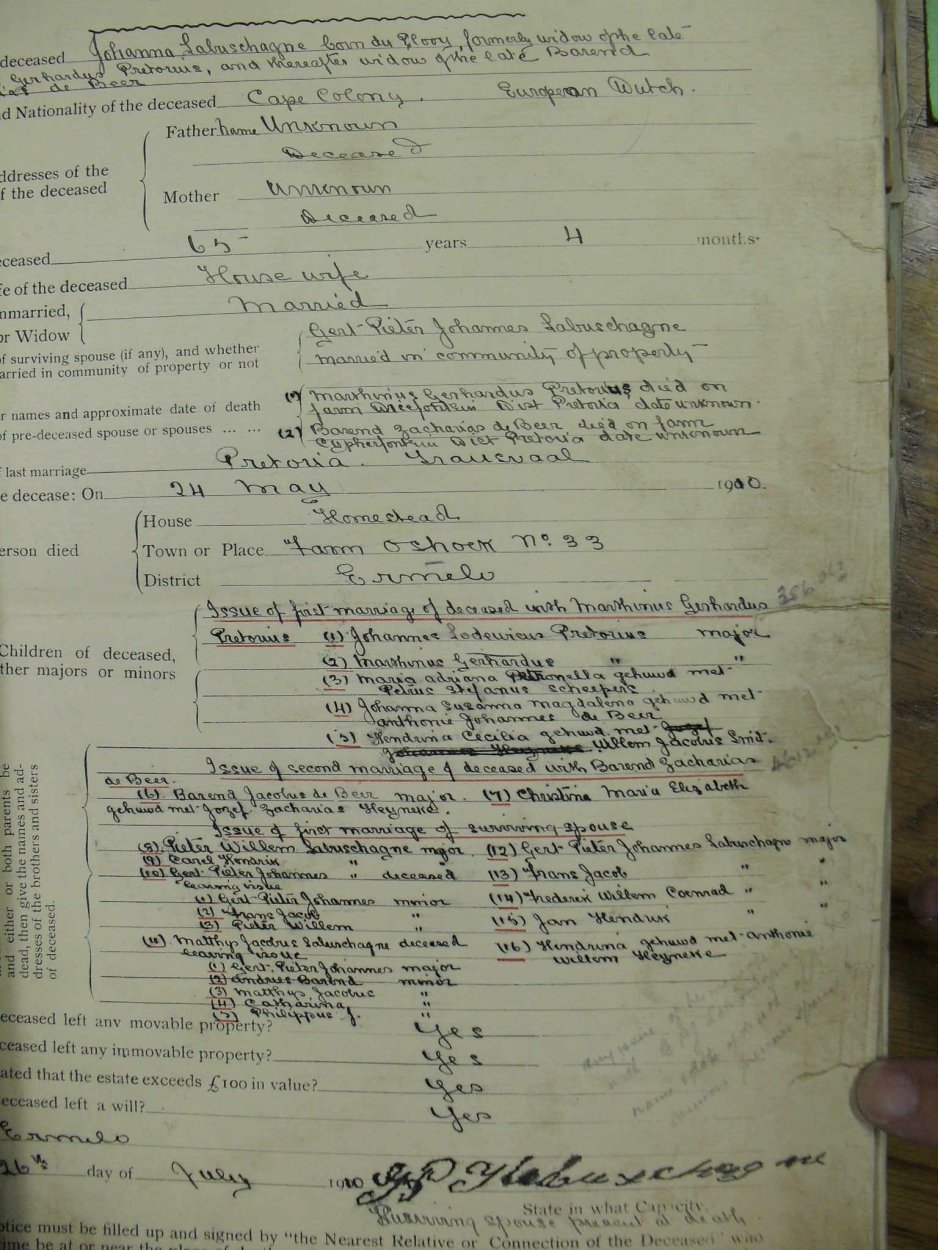 deceased Johanna Labuschagne born du Plooy, formerly widow of the late
Gerhardus Pretorius, and thereafter widow of the late Barend
de Beer
d Nationality of the deceased Cape Colony. European Dutch.
Father name Unknown
Deceased
ddresses of the
f the deceased
Mother Unknown
Deceased
eceased 65 years 4 months
fe of the deceased House wife
nmarried, Married
or Widow
of surviving spouse (if any), and whether Gert Pieter Johannes Labuschagne
arried in community of property or not married in community of property
r names and approximate date of death (1) Marthinus Gerhardus Pretorius died on
farm Dist Pretoria date unknown.
of pre-deceased spouse or spouses ... ... (2) Barend Zacharias de Beer died on farm
Cypherfontein Dist Pretoria date unknown
f last marriage Pretoria. Transvaal
e decease: On 24 May 1910.
House Homestead
erson died Town or Place Farm Oshoek No. 33
District Ermelo
Issue of first marriage of deceased with Marthinus Gerhardus 356
Pretorius (1) Johannes Lodewicus Pretorius major
Children of deceased,
ther majors or minors
(2) Marthinus Gerhardus " "
(3) Maria Adriana Petronella gehuwd met
Petrus Stefanus Scheepers
(4) Johanna Susanna Magdalena gehuwd met
Anthonie Johannes de Beer
(5) Hendrina Cecilia gehuwd met Jozef
Johannes Heyneke Willem Jacobus Smit.
Issue of second marriage of deceased with Barend Zacharias
de Beer.
(6) Barend Jacobus de Beer major. (7) Christina Maria Elizabeth
gehuwd met Jozef Zacharias Heyneke.
Issue of first marriage of surviving spouse
(8) Pieter Willem Labuschagne major (12) Gert Pieter Johannes Labuschagne major
(9) Carel Hendrik "
(10) Gert Pieter Johannes " deceased (13) Frans Jacob " "
leaving issue
(1) Gert Pieter Johannes minor (14) Frederik Willem Coenrad " "
(2) Frans Jacob "
(3) Pieter Willem " (15) Jan Hendrik " "
(11) Matthys Jacobus Labuschagne deceased (16) Hendrina gehuwd met Anthonie
leaving issue Willem Heyneke
(1) Gert Pieter Johannes major
(2) Andries Barend minor
(3) Matthys Jacobus "
(4) Catharina "
(5) Philippus J. "
and either or both parents be
dead, then give the names and ad-
dresses of the brothers and sisters
of deceased.
eceased left any movable property? Yes
ceased left any immovable property? Yes
ated that the estate exceeds £100 in value? Yes
eceased left a will? Yes
Ermelo
26th day of July 1910 Labuschagne
State in what Capacity.
Surviving spouse present at death.
otice must be filled up and signed by "the Nearest Relative or Connection of the Deceased" who
ime be at or near the place of